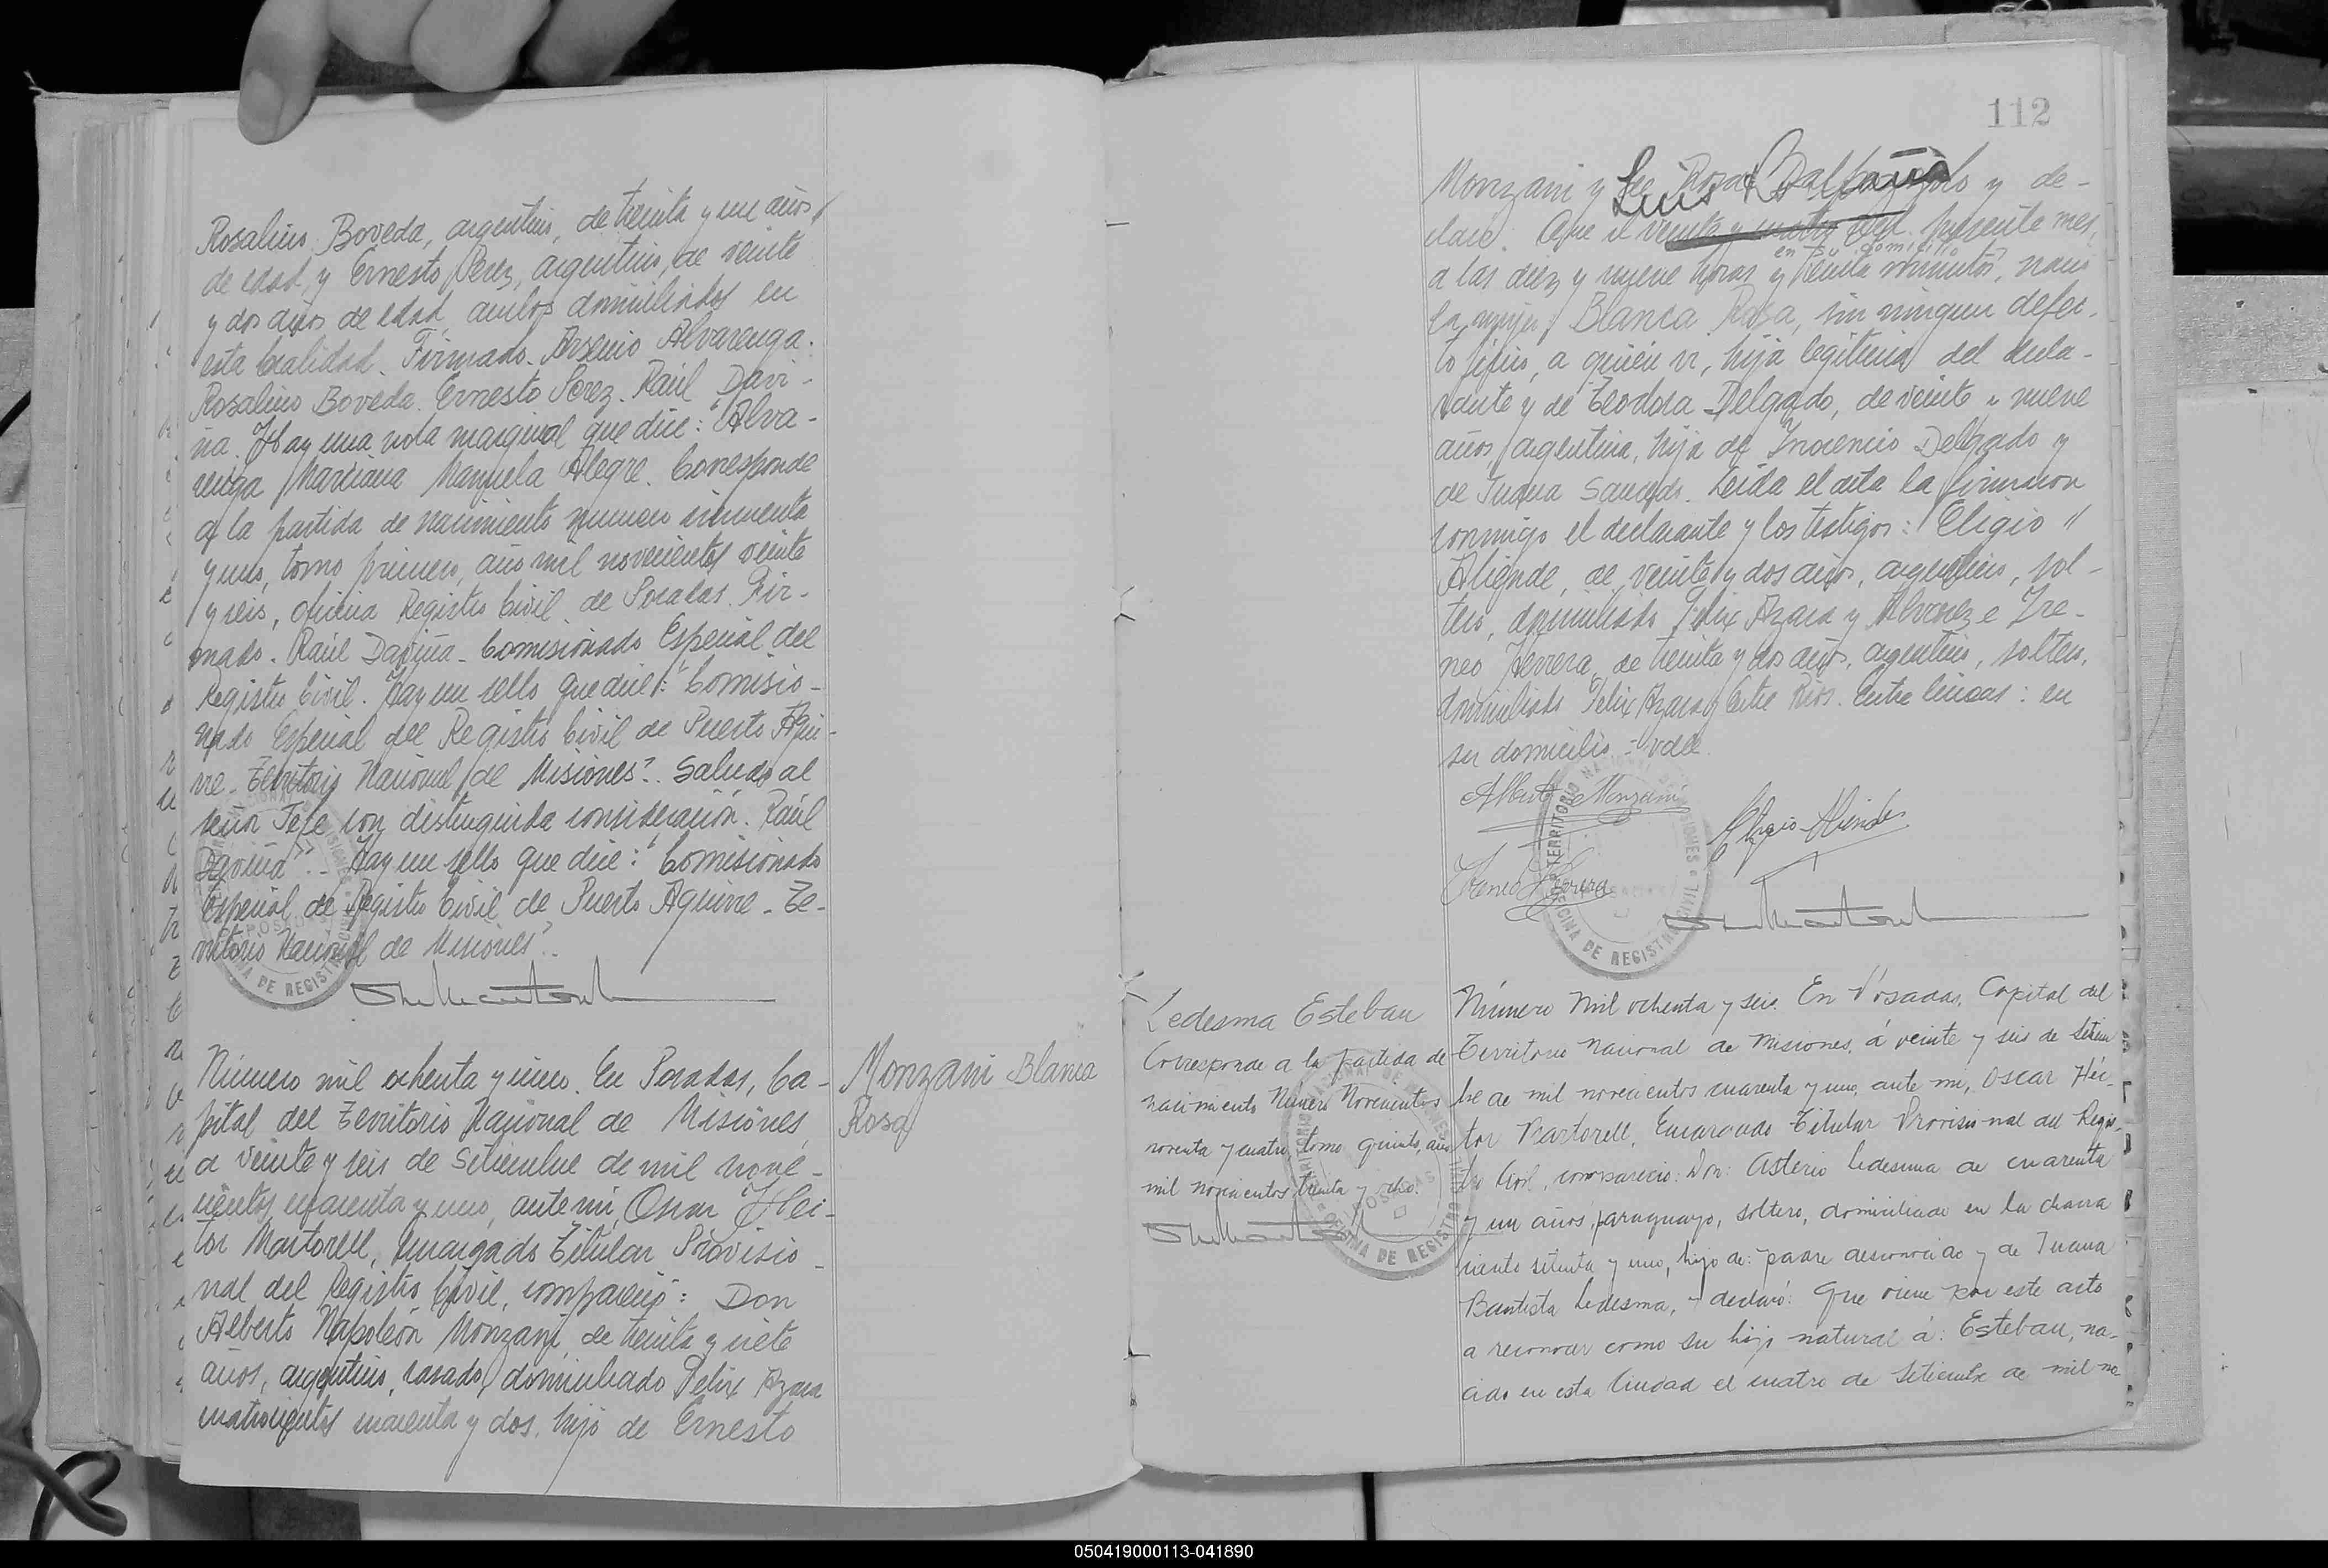 Rosalino Boveda, argentino, de treinta y un años
de edad, y Ernesto Perez, argentino, de veinte
y dos años de edad, ambos domiciliados en
esta localidad. Firmado. Arsenio Alvarenga.
Rosalino Boveda. Ernesto Perez. Raúl Davi-
ña. Hay una nota marginal que dice: "Alva-
renga Marciana Manuela Alegre. Corresponde
a la partida de nacimiento numero cincuenta
y uno, tomo primero, año mil novecientos veinte
y seis, oficina Registro Civil de Posadas. Fir-
mado. Raúl Daviña - Comisionado Especial del
Registro Civil. Hay un sello que dice: "Comisio-
nado Especial del Registro Civil de Puerto Agui-
rre - Territorio Nacional de Misiones". Saludo al
señor Jefe con distinguida consideración. Raúl
Daviña". - Hay un sello que dice: "Comisionado
Especial de Registro Civil de Puerto Aguirre - Te-
rritorio Nacional de Misiones".
Número mil ochenta y cinco. En Posadas, Ca-
pital del Territorio Nacional de Misiones,
a veinte y seis de Setiembre de mil nove-
cientos cuarenta y uno, ante mí, Oscar Héc-
tor Martorell, Encargado Titular Provisio-
nal del Registro Civil, compareció: Don
Alberto Napoleón Monzani, de treinta y siete
años, argentino, casado, domiciliado Felix Azara
cuatrocientos cuarenta y dos, hijo de Ernesto
Monzani Blanca
Rosa
112
Monzani y de Rosa y de-
claró: Que el veinte y cuatro del presente mes,
en su domicilio
a las diez y nueve horas y treinta minutos, nació
la mujer, Blanca Rosa, sin ningun defec-
to físico, a quién vi, hija legítima del decla-
rante y de Teodora Delgado, de veinte y nueve
años, argentina, hija de Inocencio Delgado y
de Juana Saucedo. Leída el acta la firmaron
conmigo el declarante y los testigos: Eligio
Aliende, de veinte y dos años, argentino, sol-
tero, domiciliado Felix Azara y Alvarez e Ire-
neo Herrera, de treinta y dos años, argentino, soltero,
domiciliado Felix Azara y Entre Rios. Entre líneas: en
su domicilio - vale.
Alberto Monzani
Eligio Aliende
Ireneo Herrera
TERRITORIO NACIONAL DE MISIONES
OFICINA DE REGISTRO CIVIL
POSADAS
Ledesma Esteban
Corresponde a la partida de
nacimiento Número Novecientos
noventa y cuatro, tomo quinto, año
mil novecientos treinta y ocho.
Número Mil ochenta y seis. En Posadas, Capital del
Territorio Nacional de Misiones, á veinte y seis de Setiem
bre de mil novecientos cuarenta y uno, ante mi, Oscar Héc-
tor Martorell, Encargado Titular Provisional del Regis-
tro Civil, compareció: Don: Asterio Ledesma de cuarenta
y un años, paraguayo, soltero, domiciliado en la chacra
ciento setenta y uno, hijo de: padre desconocido y de Juana
Bautista Ledesma, y declaró: Que viene por este acto
a reconocer como su hijo natural á: Esteban, na-
cido en esta Ciudad el cuatro de Setiembre de mil no
050419000113-041890